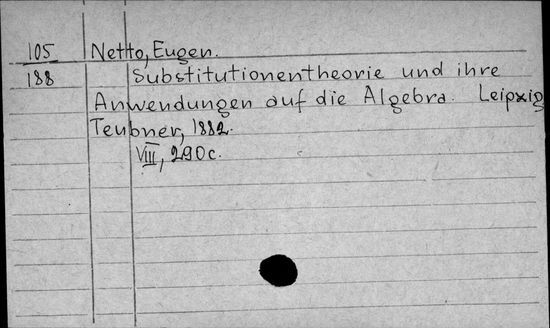 105 Netto, Eugen.
188 Substitutionentheorie und ihre
Anwendungen auf die Algebra. Leipzig
Teubner, 1882.
VIII, 290c.